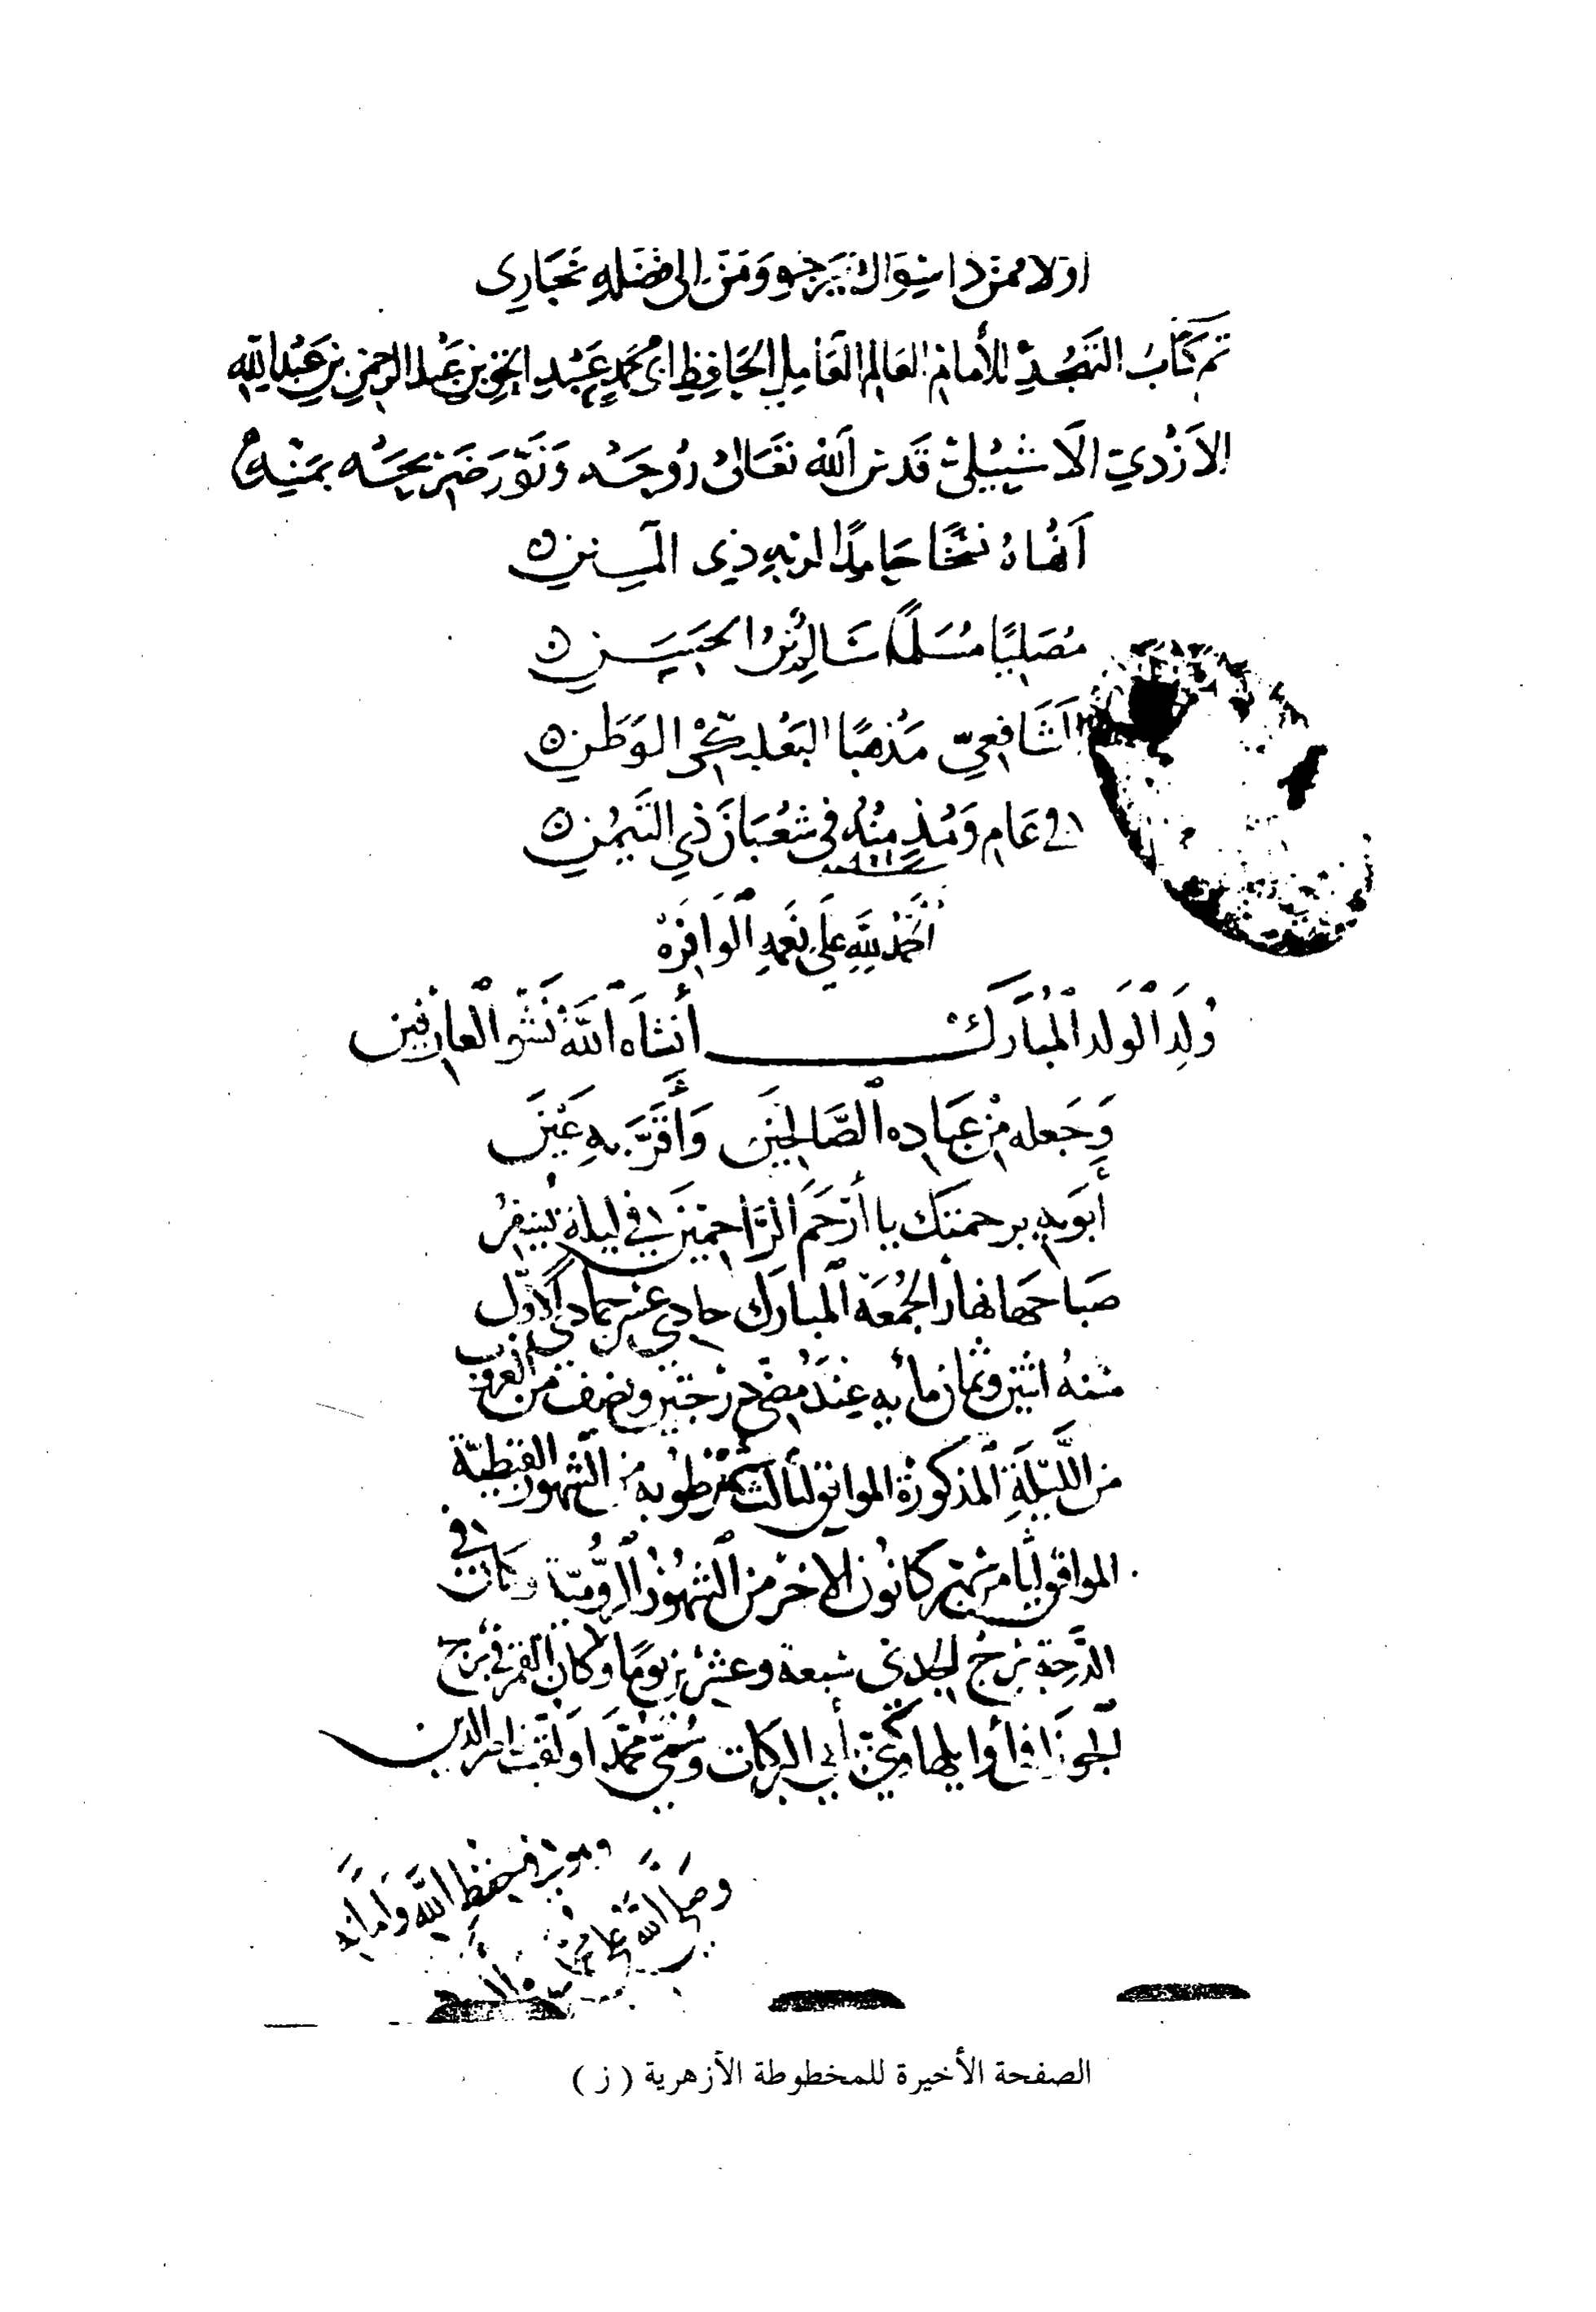 اولا ممن ذا سواك يرجو ومن إلى فضله تجاري
تم كتاب التهجد للأمام العالم العامل الحافظ ابى محمد عبد الحق بن عبد الرحمن بن عبد الله
الازدي الاشبيلي قدس الله تعالى روحه ونور ضريحه بمنه
أنهاه نسخا حامدا لربه ذي المنن
مصليا مسلما الحسن
الشافعي مذهبا البعلبكي الوطن
في عام ومنه في شعبان ذي اليمن
الحمد لله على نعمه الوافرة
ولد الولد المبارك أنشاه الله نشو العارفين
وجعله من عباده الصالحين وأقر به عين
أبويه برحمتك يا أرحم الراحمين في ليلة يسفر
صباحها نهار الجمعة المبارك حادي عشر جمادي الاول
سنه اثنين وثمان مايه عند مضي درجتين ونصف من الغروب
من الليلة المذكورة الموافق لثالث عشر طوبه من الشهور القبطية
الموافق لثامن شهر كانون الاخر من الشهور الرومية وكان في
الدرجة برج الجدي سبعة وعشرين يوما وكان القمر في برج
الجوزا في أوايلها وكني أبي البركات وسمي محمدا ولقب ناصر الدين
في حفظ الله وأمانه
وصلى الله على محمد
الصفحة الأخيرة للمخطوطة الأزهرية ( ز )